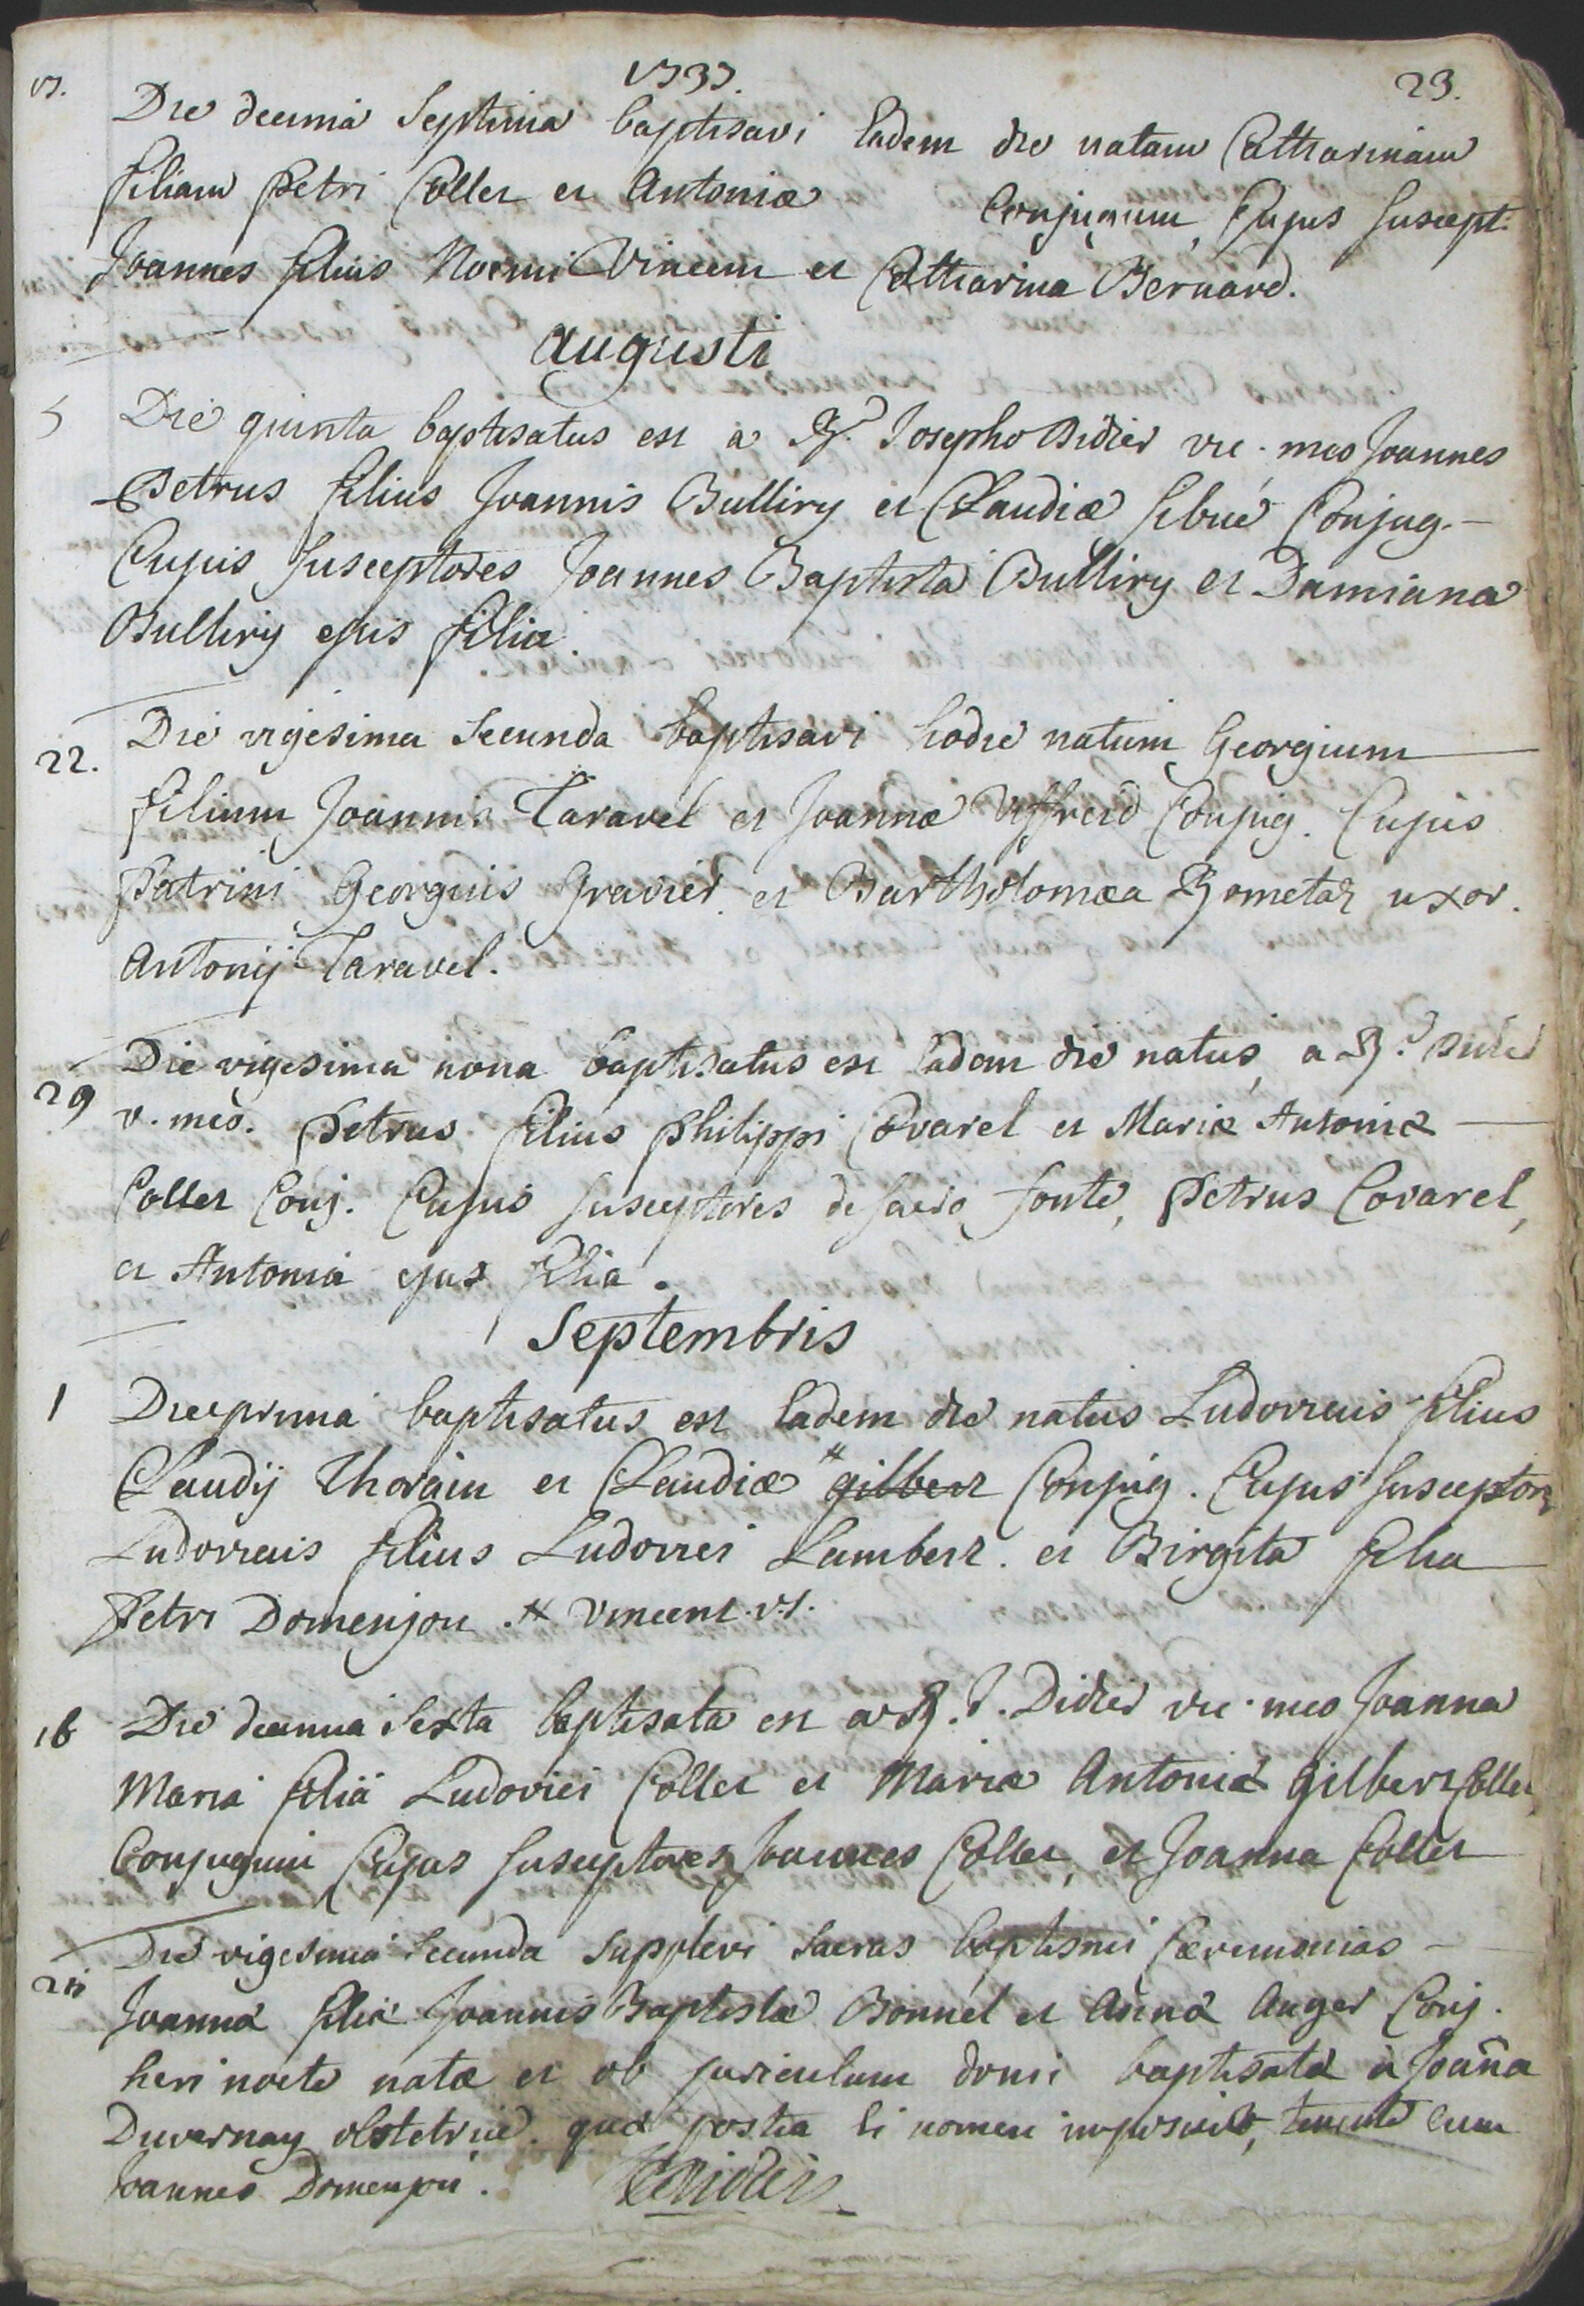 1737. 23.
17. Die decima Septima baptisavi Eadem die natam Catharinam
filiam Petri Collet et Antoniæ Conjugum, Cujus suscept.
Joannes filius Noemi Vincent et Catharina Bernard.
Augusti
5 Die quinta baptisatus est a R.d Josepho Didier vic. meo Joannes
Petrus filius Joannis Bulliry et Claudiæ Sibué Conjug.
Cujus Susceptores Joannes Baptista Bulliry et Damiana
Bulliry ejus filia.
22. Die vigesima Secunda baptisavi hodie natum Georgium
filium Joannis Taravel et Joannæ Uffreid Conjug. Cujus
Patrini Georgius Gravier et Bartholomæa Rometaz uxor.
Antonij Taravel.
29 Die vigesima nona baptisatus est Eadem die natus, a R.d Didier
v. meo. Petrus filius Philippi Covarel et Mariæ Antoniæ
Collet Conj. Cujus Susceptores de sacro fonte, Petrus Covarel,
et Antonia ejus filia.
Septembris
1 Die prima baptisatus est Eadem die natus Ludovicus filius
Claudij Thorain et Claudiæ # gilbert Conjug. Cujus Susceptor.
Ludovicus filius Ludovici Lambert. et Birgita filia
Petri Domenjon. # Vincent.
16 Die decima Sexta baptisata est a R.d Didier vic. meo Joanna
Maria filia Ludovici Collet et Mariæ Antoniæ Gilbert Collet,
Conjugum Cujus Susceptores, Joannes Collet, et Joanna Collet
22 Die vigesima Secunda Supplevi Sacras baptismi Cæremonias
Joannæ filiæ Joannis Baptistæ Bonnel et Annæ Anger Conj.
heri nocte natæ et ob periculum domi baptisatæ a Joana
Duvernay obstetrice. quæ postea Ei nomen imposuit, tenente Eum
Joannes Domenjon.